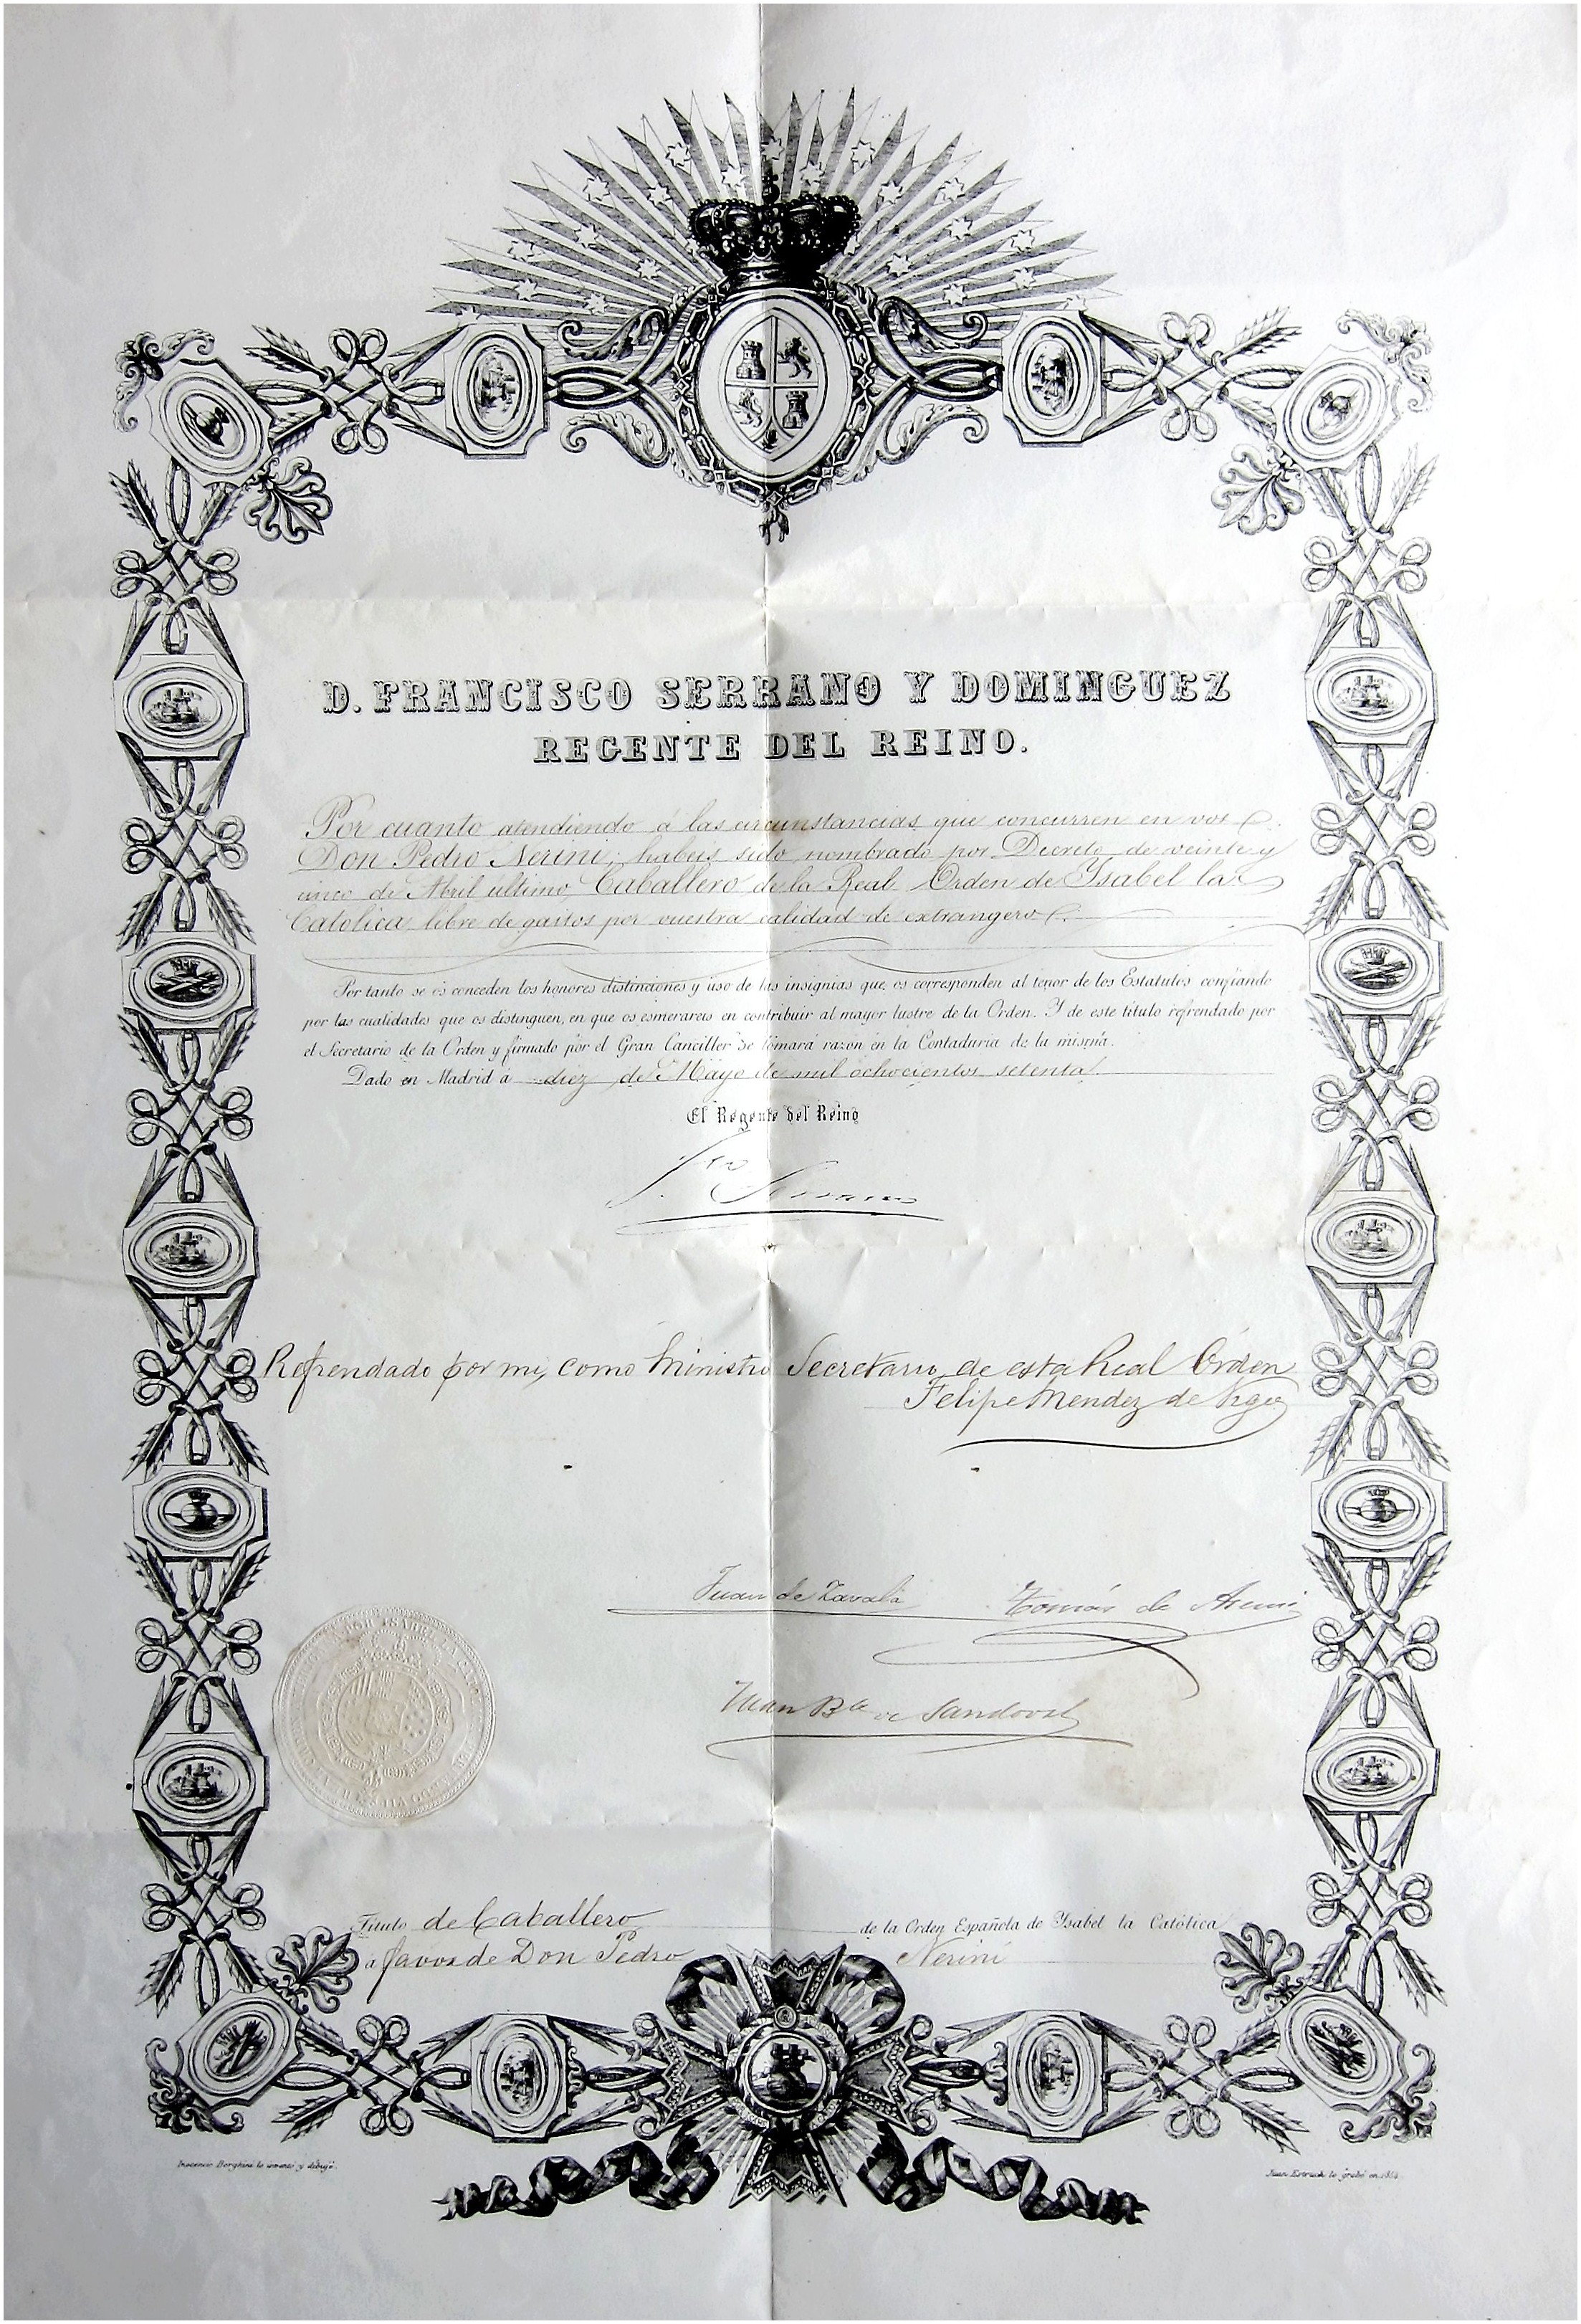 D. FRANCISCO SERRANO Y DOMINGUEZ
REGENTE DEL REINO.
Por cuanto atendiendo á las circunstancias que concurren en vos
Don Pedro Nerini, habeis sido nombrado por Decreto de veinte y
cinco de Abril ultimo, Caballero de la Real Orden de Isabel la
Catolica, libre de gastos por vuestra calidad de extrangero
Por tanto se os conceden los honores distinciones y uso de las insignias que os corresponden al tenor de los Estatutos confiando
por las cualidades que os distinguen, en que os esmerareis en contribuir al mayor lustre de la Orden. Y de este título refrendado por
el Secretario de la Orden y firmado por el Gran Canciller se tomará razón en la Contaduría de la misma.
Dado en Madrid á diez de Mayo de mil ochocientos setenta.
El Regente del Reino
Fco Serrano
Refrendado por mi, como Ministro Secretario de esta Real Orden
Felipe Mendez de Vigo
Juan de Zavala Tomás de
Juan Bta de Sandoval
Título de Caballero de la Orden Española de Isabel la Católica
a favor de Don Pedro Nerini
Inocencio Borghini lo inventó y dibujó.
Juan Estruch lo grabó en